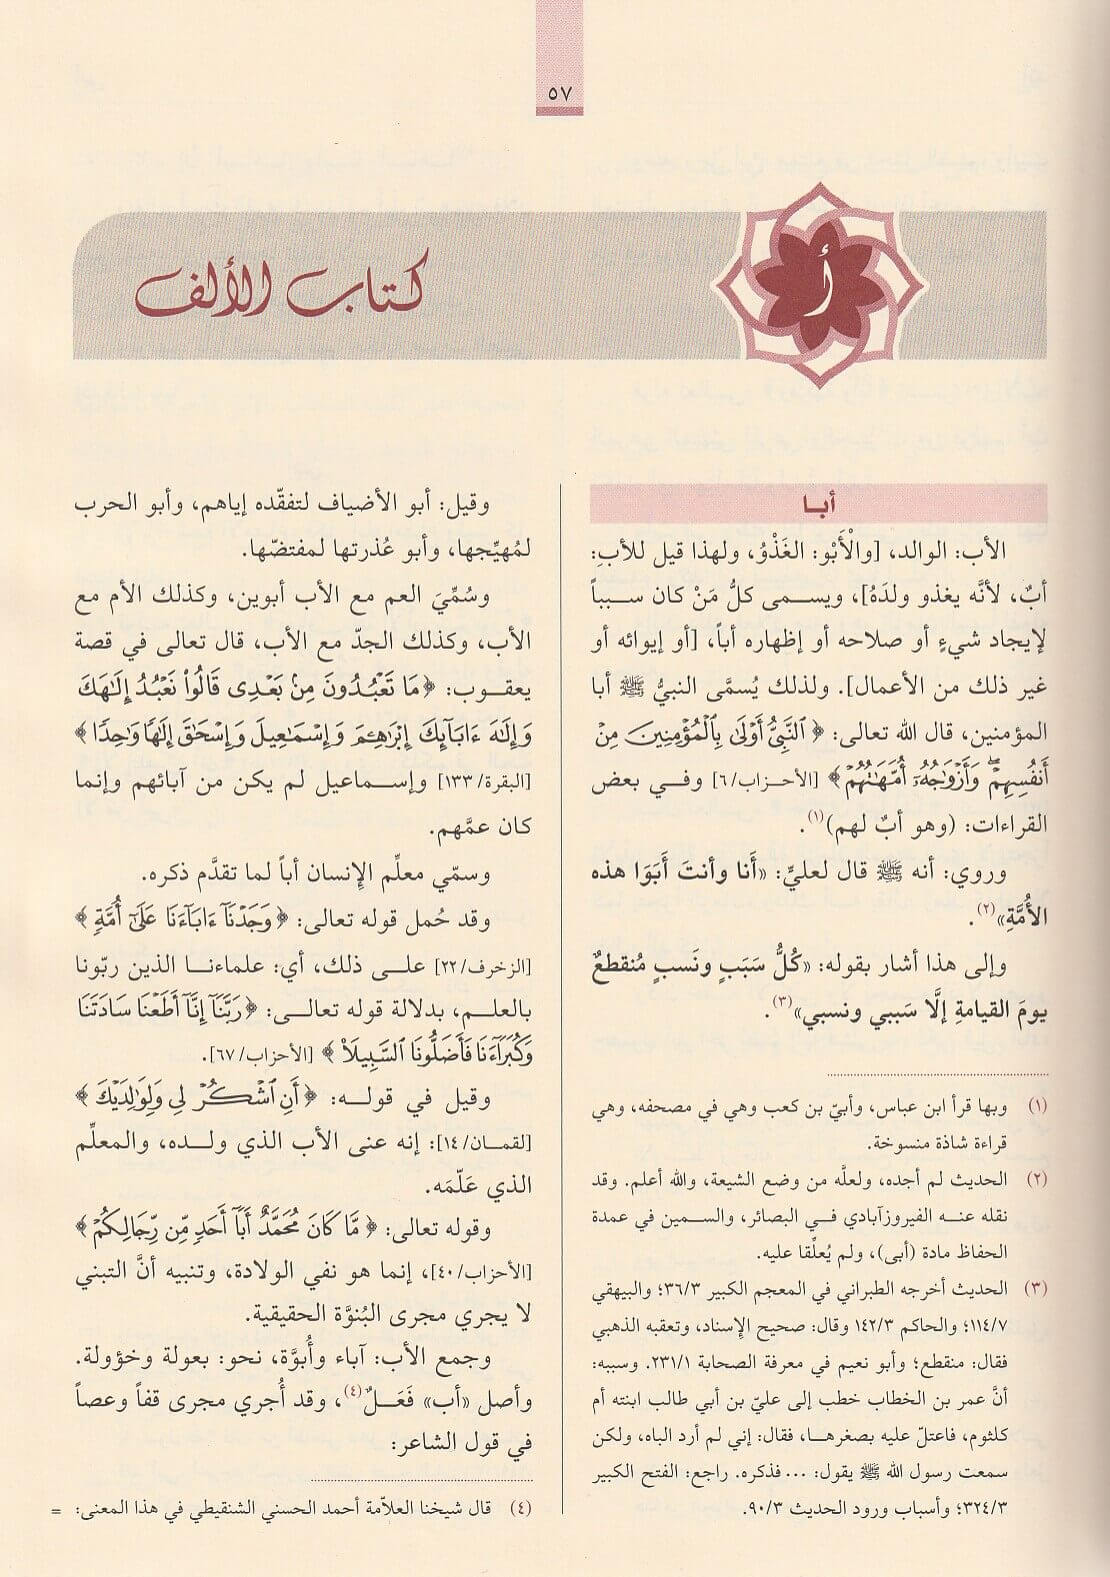 ٥٧
أ
كتاب الألف
أبا
الأب: الوالد، [والْأَبْو: الغَذْوُ، ولهذا قيل للأبِ:
أبٌ، لأنَّه يغذو ولدَهُ]، ويسمى كلُّ مَنْ كان سبباً
لإيجاد شيءٍ أو صلاحه أو إظهاره أباً، [أو إيوائه أو
غير ذلك من الأعمال]. ولذلك يُسمَّى النبيُّ ﷺ أبا
المؤمنين، قال الله تعالى: ﴿ ٱلنَّبِىُّ أَوْلَىٰ بِٱلْمُؤْمِنِينَ مِنْ
أَنفُسِهِمْ ۖ وَأَزْوَٰجُهُۥٓ أُمَّهَـٰتُهُمْ﴾ [الأحزاب/٦] وفي بعض
القراءات: (وهو أبٌ لهم)(١).
وروي: أنه ﷺ قال لعليٍّ: «أَنا وأنتَ أَبَوَا هذه
الأُمَّةِ»(٢).
وإلى هذا أشار بقوله: «كُلُّ سَبَبٍ ونَسبٍ مُنقطعٌ
يومَ القيامةِ إلَّا سَببي ونسبي»(٣).
(١) وبها قرأ ابن عباس، وأبيّ بن كعب وهي في مصحفه، وهي
قراءة شاذة منسوخة.
(٢) الحديث لم أجده، ولعلَّه من وضع الشيعة، والله أعلم. وقد
نقله عنه الفيروزآبادي في البصائر، والسمين في عمدة
الحفاظ مادة (أبى)، ولم يُعلِّقا عليه.
(٣) الحديث أخرجه الطبراني في المعجم الكبير ٣٦/٣؛ والبيهقي
١١٤/٧؛ والحاكم ١٤٢/٣ وقال: صحيح الإسناد، وتعقبه الذهبي
فقال: منقطع؛ وأبو نعيم في معرفة الصحابة ٢٣١/١. وسببه:
أنَّ عمر بن الخطاب خطب إلى عليّ بن أبي طالب ابنته أم
كلثوم، فاعتلّ عليه بصغرها، فقال: إني لم أرد الباه، ولكن
سمعت رسول الله ﷺ يقول: ... فذكره. راجع: الفتح الكبير
٣٢٤/٣؛ وأسباب ورود الحديث ٩٠/٣.
وقيل: أبو الأضياف لتفقّده إياهم، وأبو الحرب
لمُهيِّجها، وأبو عُذرتها لمفتضّها.
وسُمِّيَ العم مع الأب أبوين، وكذلك الأم مع
الأب، وكذلك الجدّ مع الأب، قال تعالى في قصة
يعقوب: ﴿مَا تَعْبُدُونَ مِنۢ بَعْدِى قَالُوا۟ نَعْبُدُ إِلَـٰهَكَ
وَإِلَـٰهَ ءَابَآئِكَ إِبْرَٰهِـۧمَ وَإِسْمَـٰعِيلَ وَإِسْحَـٰقَ إِلَـٰهًا وَٰحِدًا ﴾
[البقرة/١٣٣] وإسماعيل لم يكن من آبائهم وإنما
كان عمَّهم.
وسمّي معلِّم الإنسان أباً لما تقدَّم ذكره.
وقد حُمل قوله تعالى: ﴿وَجَدْنَآ ءَابَآءَنَا عَلَىٰٓ أُمَّةٍ ﴾
[الزخرف/٢٢] على ذلك، أي: علماءنا الذين ربّونا
بالعلم، بدلالة قوله تعالى: ﴿ رَبَّنَآ إِنَّآ أَطَعْنَا سَادَتَنَا
وَكُبَرَآءَنَا فَأَضَلُّونَا ٱلسَّبِيلَا۠ ﴾ [الأحزاب/٦٧].
وقيل في قوله: ﴿أَنِ ٱشْكُرْ لِى وَلِوَٰلِدَيْكَ ﴾
[لقمان/١٤]: إنه عنى الأب الذي ولده، والمعلِّم
الذي عَلّمَه.
وقوله تعالى: ﴿ مَّا كَانَ مُحَمَّدٌ أَبَآ أَحَدٍ مِّن رِّجَالِكُمْ ﴾
[الأحزاب/٤٠]، إنما هو نفي الولادة، وتنبيه أنَّ التبني
لا يجري مجرى البُنوَّة الحقيقية.
وجمع الأب: آباء وأُبوَّة، نحو: بعولة وخؤولة.
وأصل «أب» فَعَلٌ(٤)، وقد أُجري مجرى قفاً وعصاً
في قول الشاعر:
(٤) قال شيخنا العلاّمة أحمد الحسني الشنقيطي في هذا المعنى: =